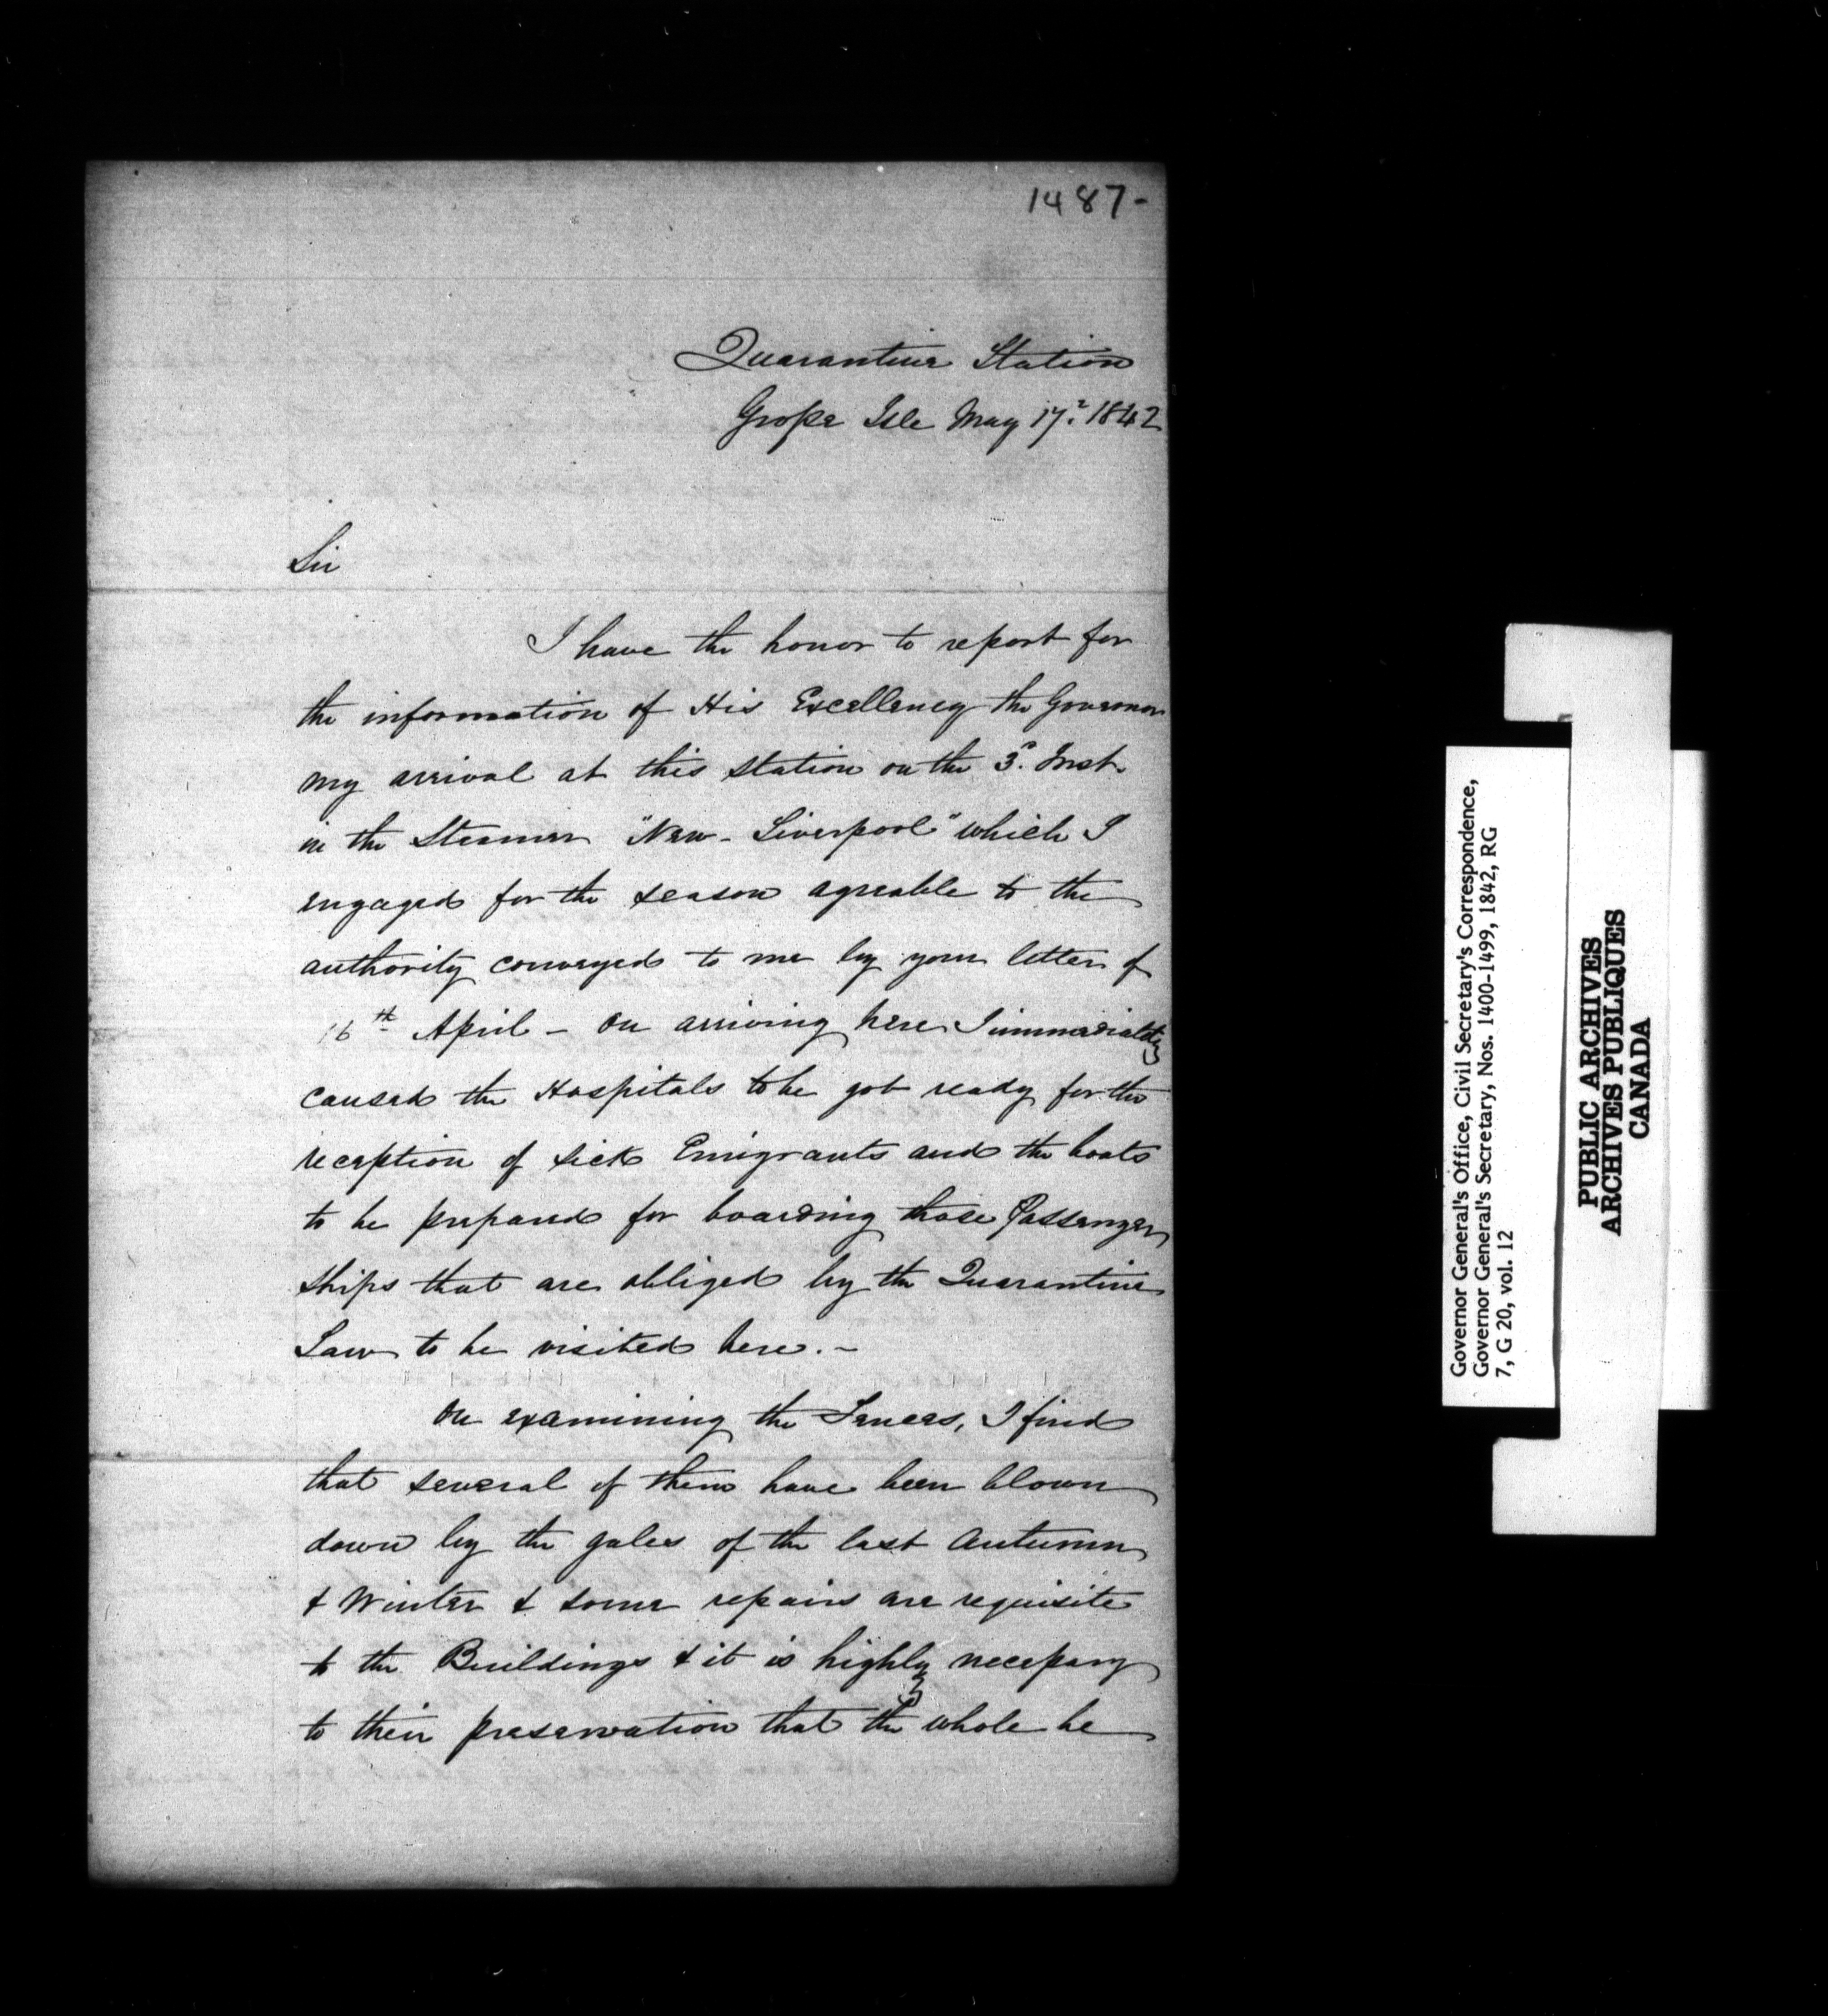 1487-
Quarantine Station
Grosse Isle May 17. 1842
Sir
I have the honor to report for
the information of His Excellency the Governor
my arrival at this station on the 3d. Inst.
in the Steamer "New-Liverpool" which I
engaged for the season agreable to the
authority conveyed to me by your letter of
16th April - On arriving here I immediately
caused the Hospitals to be got ready for the
reception of sick Emigrants and the boats
to be prepared for boarding those Passenger
ships that are obliged by the Quarantine
Law to be visited here. -
On examining the Fences, I find
that several of them have been blown
down by the gales of the last Autumn
& Winter & some repairs are requisite
to the Buildings & it is highly necessary
to their preservation that the whole be
Governor General's Office, Civil Secretary's Correspondence,
Governor General's Secretary, Nos. 1400-1499, 1842, RG
7, G 20, vol. 12
PUBLIC ARCHIVES
ARCHIVES PUBLIQUES
CANADA